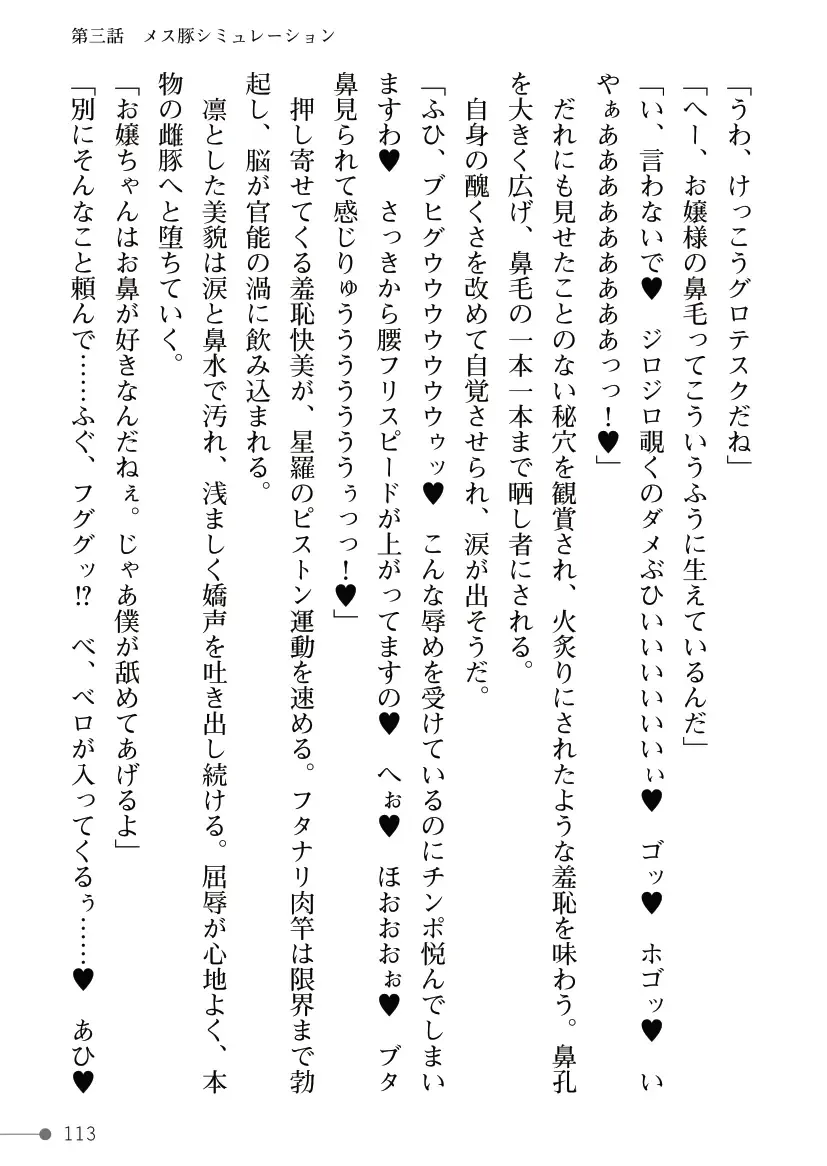 第三話　メス豚シミュレーション
「うわ、けっこうグロテスクだね」
「へー、お嬢様の鼻毛ってこういうふうに生えているんだ」
「い、言わないで♥　ジロジロ覗くのダメぶひぃいいいいいぃ♥　ゴッ♥　ホゴッ♥　い
やぁああああああああっっ！♥」
　だれにも見せたことのない秘穴を観賞され、火炙りにされたような羞恥を味わう。鼻孔
を大きく広げ、鼻毛の一本一本まで晒し者にされる。
　自身の醜くさを改めて自覚させられ、涙が出そうだ。
「ふひ、ブヒグウウウウウウウゥッ♥　こんな辱めを受けているのにチンポ悦んでしまい
ますわ♥　さっきから腰フリスピードが上がってますの♥　へぉ♥　ほおおおぉ♥　ブタ
鼻見られて感じりゅううううううぅっっ！♥」
　押し寄せてくる羞恥快美が、星羅のピストン運動を速める。フタナリ肉竿は限界まで勃
起し、脳が官能の渦に飲み込まれる。
　凛とした美貌は涙と鼻水で汚れ、浅ましく嬌声を吐き出し続ける。屈辱が心地よく、本
物の雌豚へと堕ちていく。
「お嬢ちゃんはお鼻が好きなんだねぇ。じゃあ僕が舐めてあげるよ」
「別にそんなこと頼んで……ふぐ、フググッ!?　べ、ベロが入ってくるぅ……♥　あひ♥
113